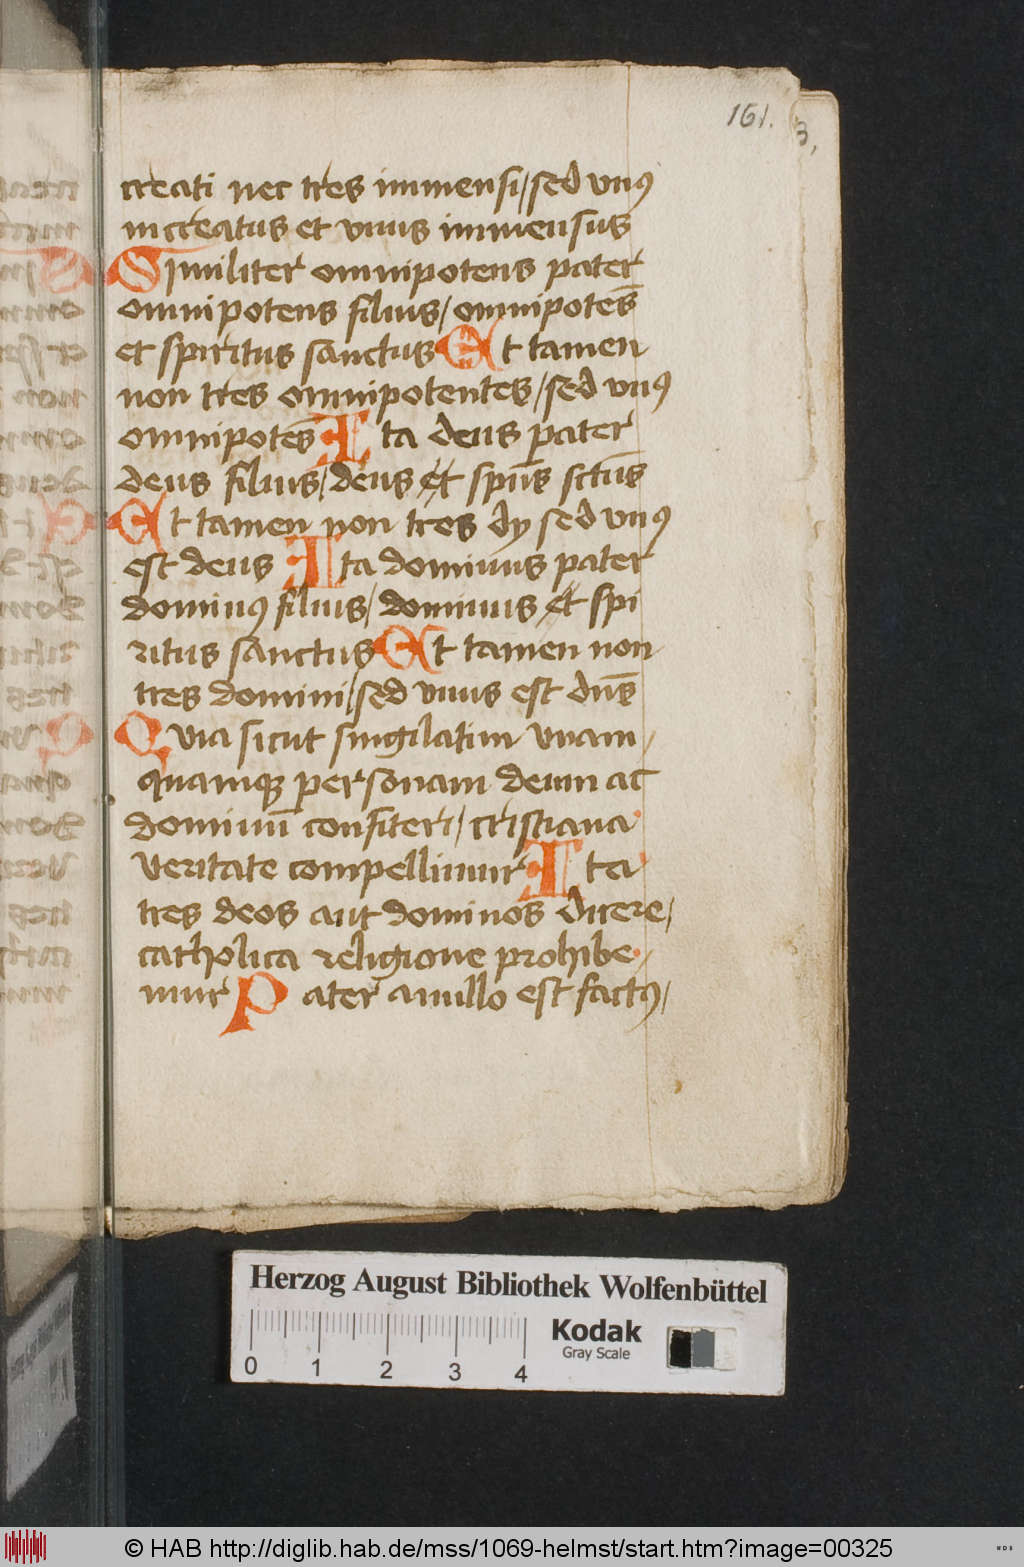 161.
3,
creati nec tres immensi/sed vnꝰ
increatus et vnus immensus
Similiter omnipotens pater
omnipotens filius/omnipotēs
et spiritus sanctus Et tamen
non tres omnipotentes/sed vnꝰ
omnipotēs Ita deus pater
deus filius/deus et sp̄us sctūs
Et tamen non tres dij sed vnꝰ
est deus Ita dominus pater
dominꝰ filius/dominus et spi
ritus sanctus Et tamen non
tres domini/sed vnus est dn̄s
Quia sicut singilatim vnam/
quamqꝫ personam deum ac
dominū confiteri/cristiana
veritate compellimur Ita
tres deos aut dominos dicere/
catholica religione prohibe/
mur Pater a nullo est factꝰ/
Herzog August Bibliothek Wolfenbüttel
Kodak
Gray Scale
0 1 2 3 4
© HAB http://diglib.hab.de/mss/1069-helmst/start.htm?image=00325